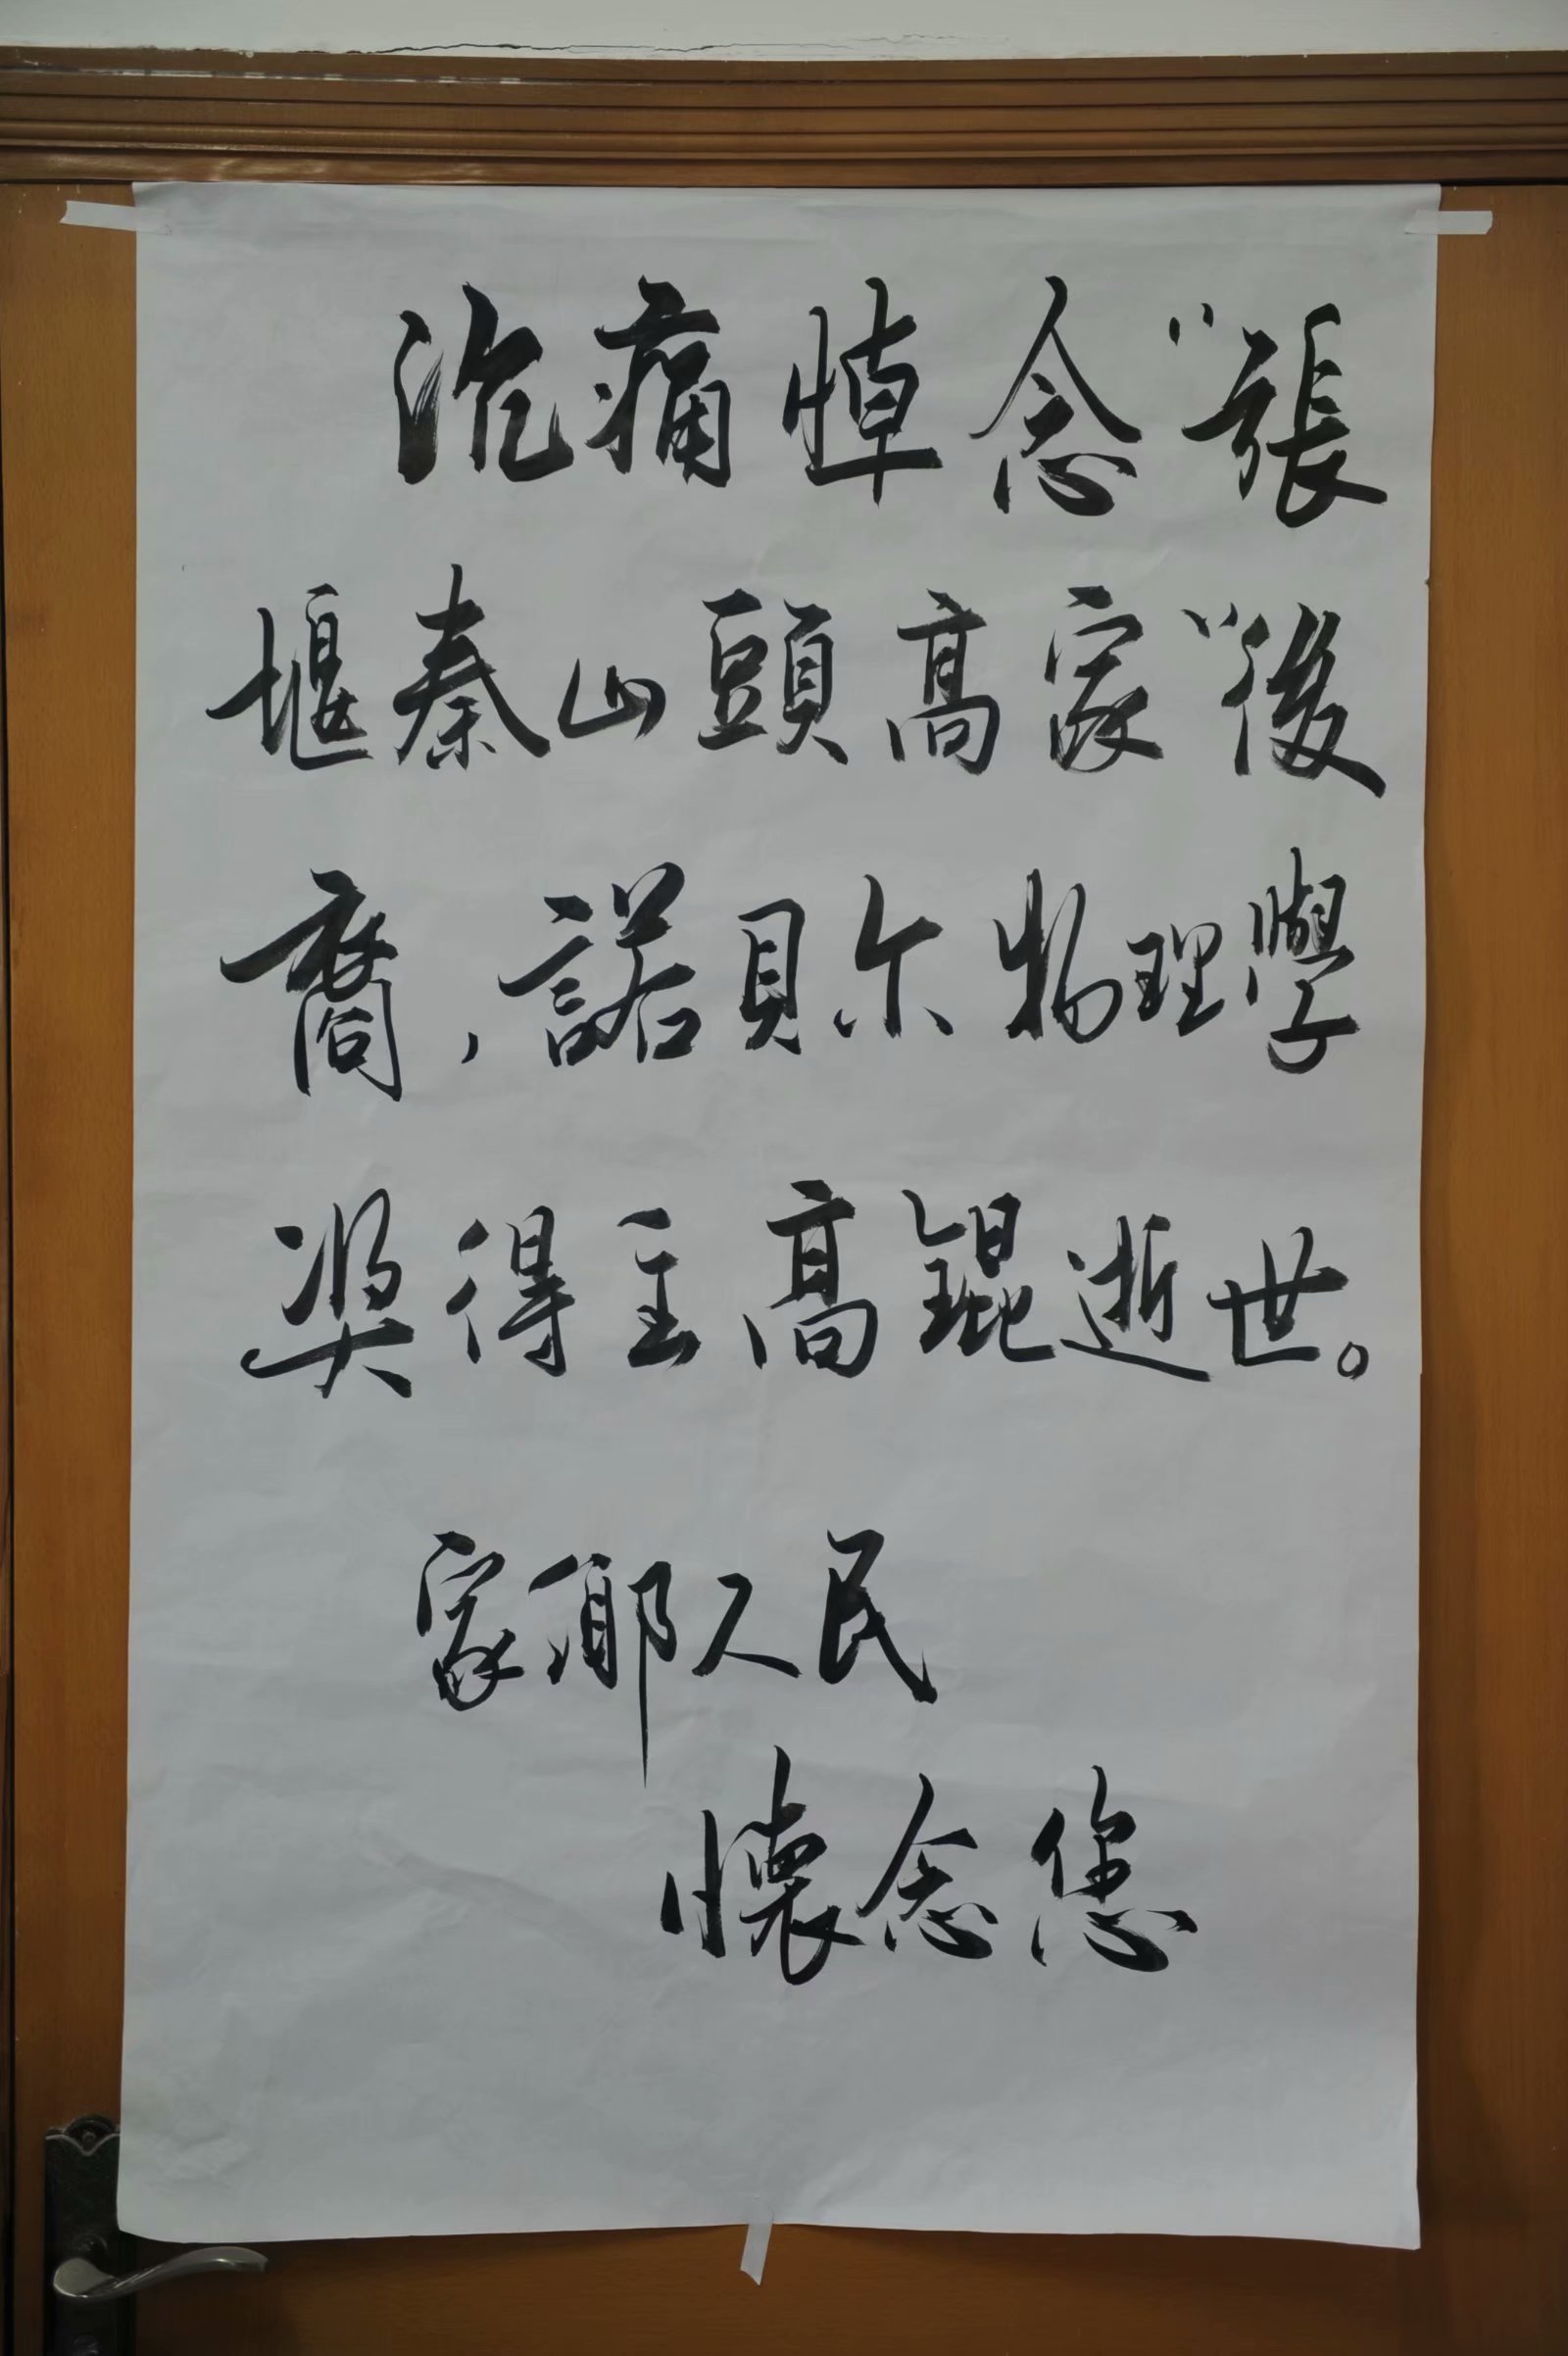 沉痛悼念“張
堰秦山頭高家”後
裔，諾貝尔物理學
奖得主高錕逝世。
家鄉人民
懷念您